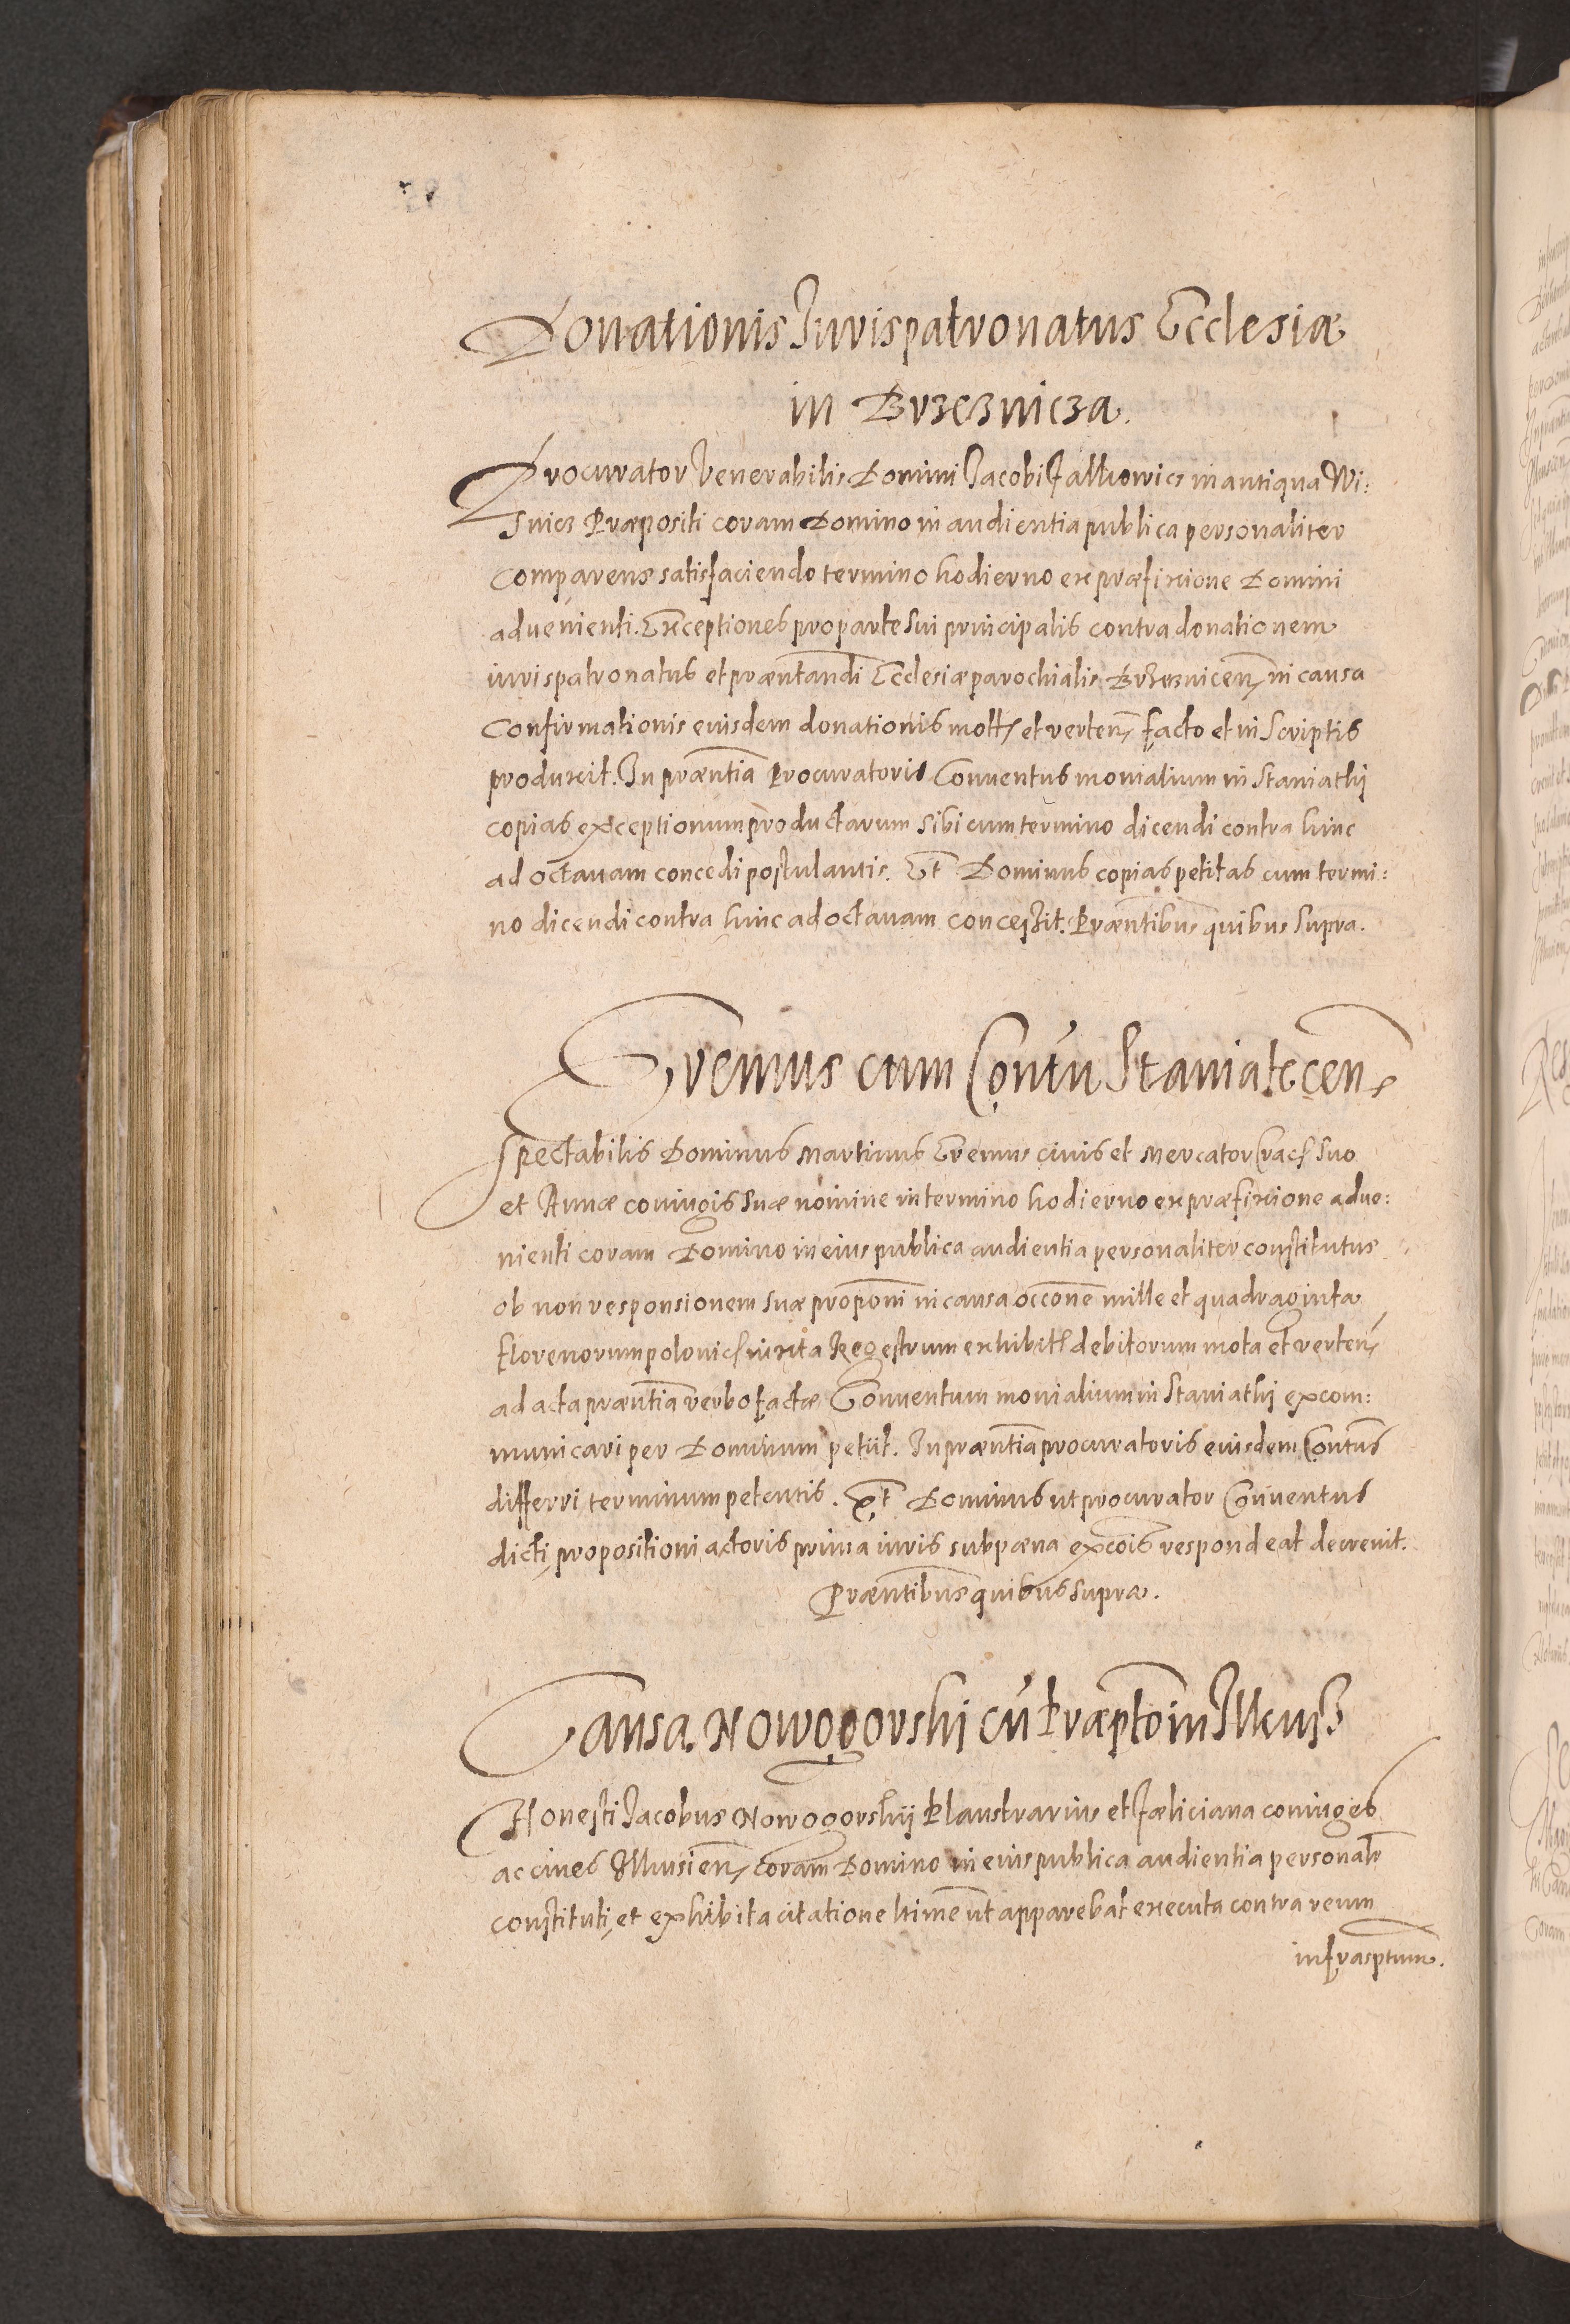 Donationis Jurispatronatus Ecclesiæ
in Brzeznicza.
Procurator Venerabilis Domini Jacobi in antiqua Wi:
snicz Præpositi coram Domino in audientia publica personaliter
comparens satisfaciendo termino hodierno ex præfixione Domini
advenienti. Exceptiones pro parte sui principalis contra donationem
iurispatronatus et præntandi Ecclesiæ parochialis Brzeznicen in causa
Confirmationis eiusdem donationis et verten facto et in scriptis
produxit. In præntia Procuratoris Conventus monialium in Staniathi
copias exceptionum productarum sibi cum termino dicendi contra hinc
ad octavam concedi postulantis. Et Dominus copias petitas cum termi:
no dicendi contra hinc ad octavam concessit. Præntibus quibus supra.
Eremus cum Conūtu Staniatecen
Spectabilis Dominus Martinus Eremus civis et Mercator Crac suo
et Annæ coniugis suæ nomine in termino hodierno ex præfixione adve:
nienti coram Domino in eius publica audientia personaliter constitutus
ob non responsionem suæ proponi in causa occone mille et quadraginta
florenorum polonic iuxta Regestrum exhibit debitorum mota et verten
ad acta præntia verbo factæ Conventum monialium in Staniathi excom:
municari per Dominum petiit. In præntia procuratoris eiusdem Contus
differri terminum petentis. Et Dominus ut procurator Conventus
dicti propositioni actoris prima iuris sub pæna excois respondeat decrevit.
Præntibus quibus supra.
Causa Nowogorski cū Præpto in Ilkusz
Honesti Jacobus Nowogorskij Plaustrarius et Fæliciana coniuges
ac cives Ilkusien coram Domino in eius publica audientia personalr
constituti, et exhibita citatione ltime ut apparebat executa contra reum
infrasptum.